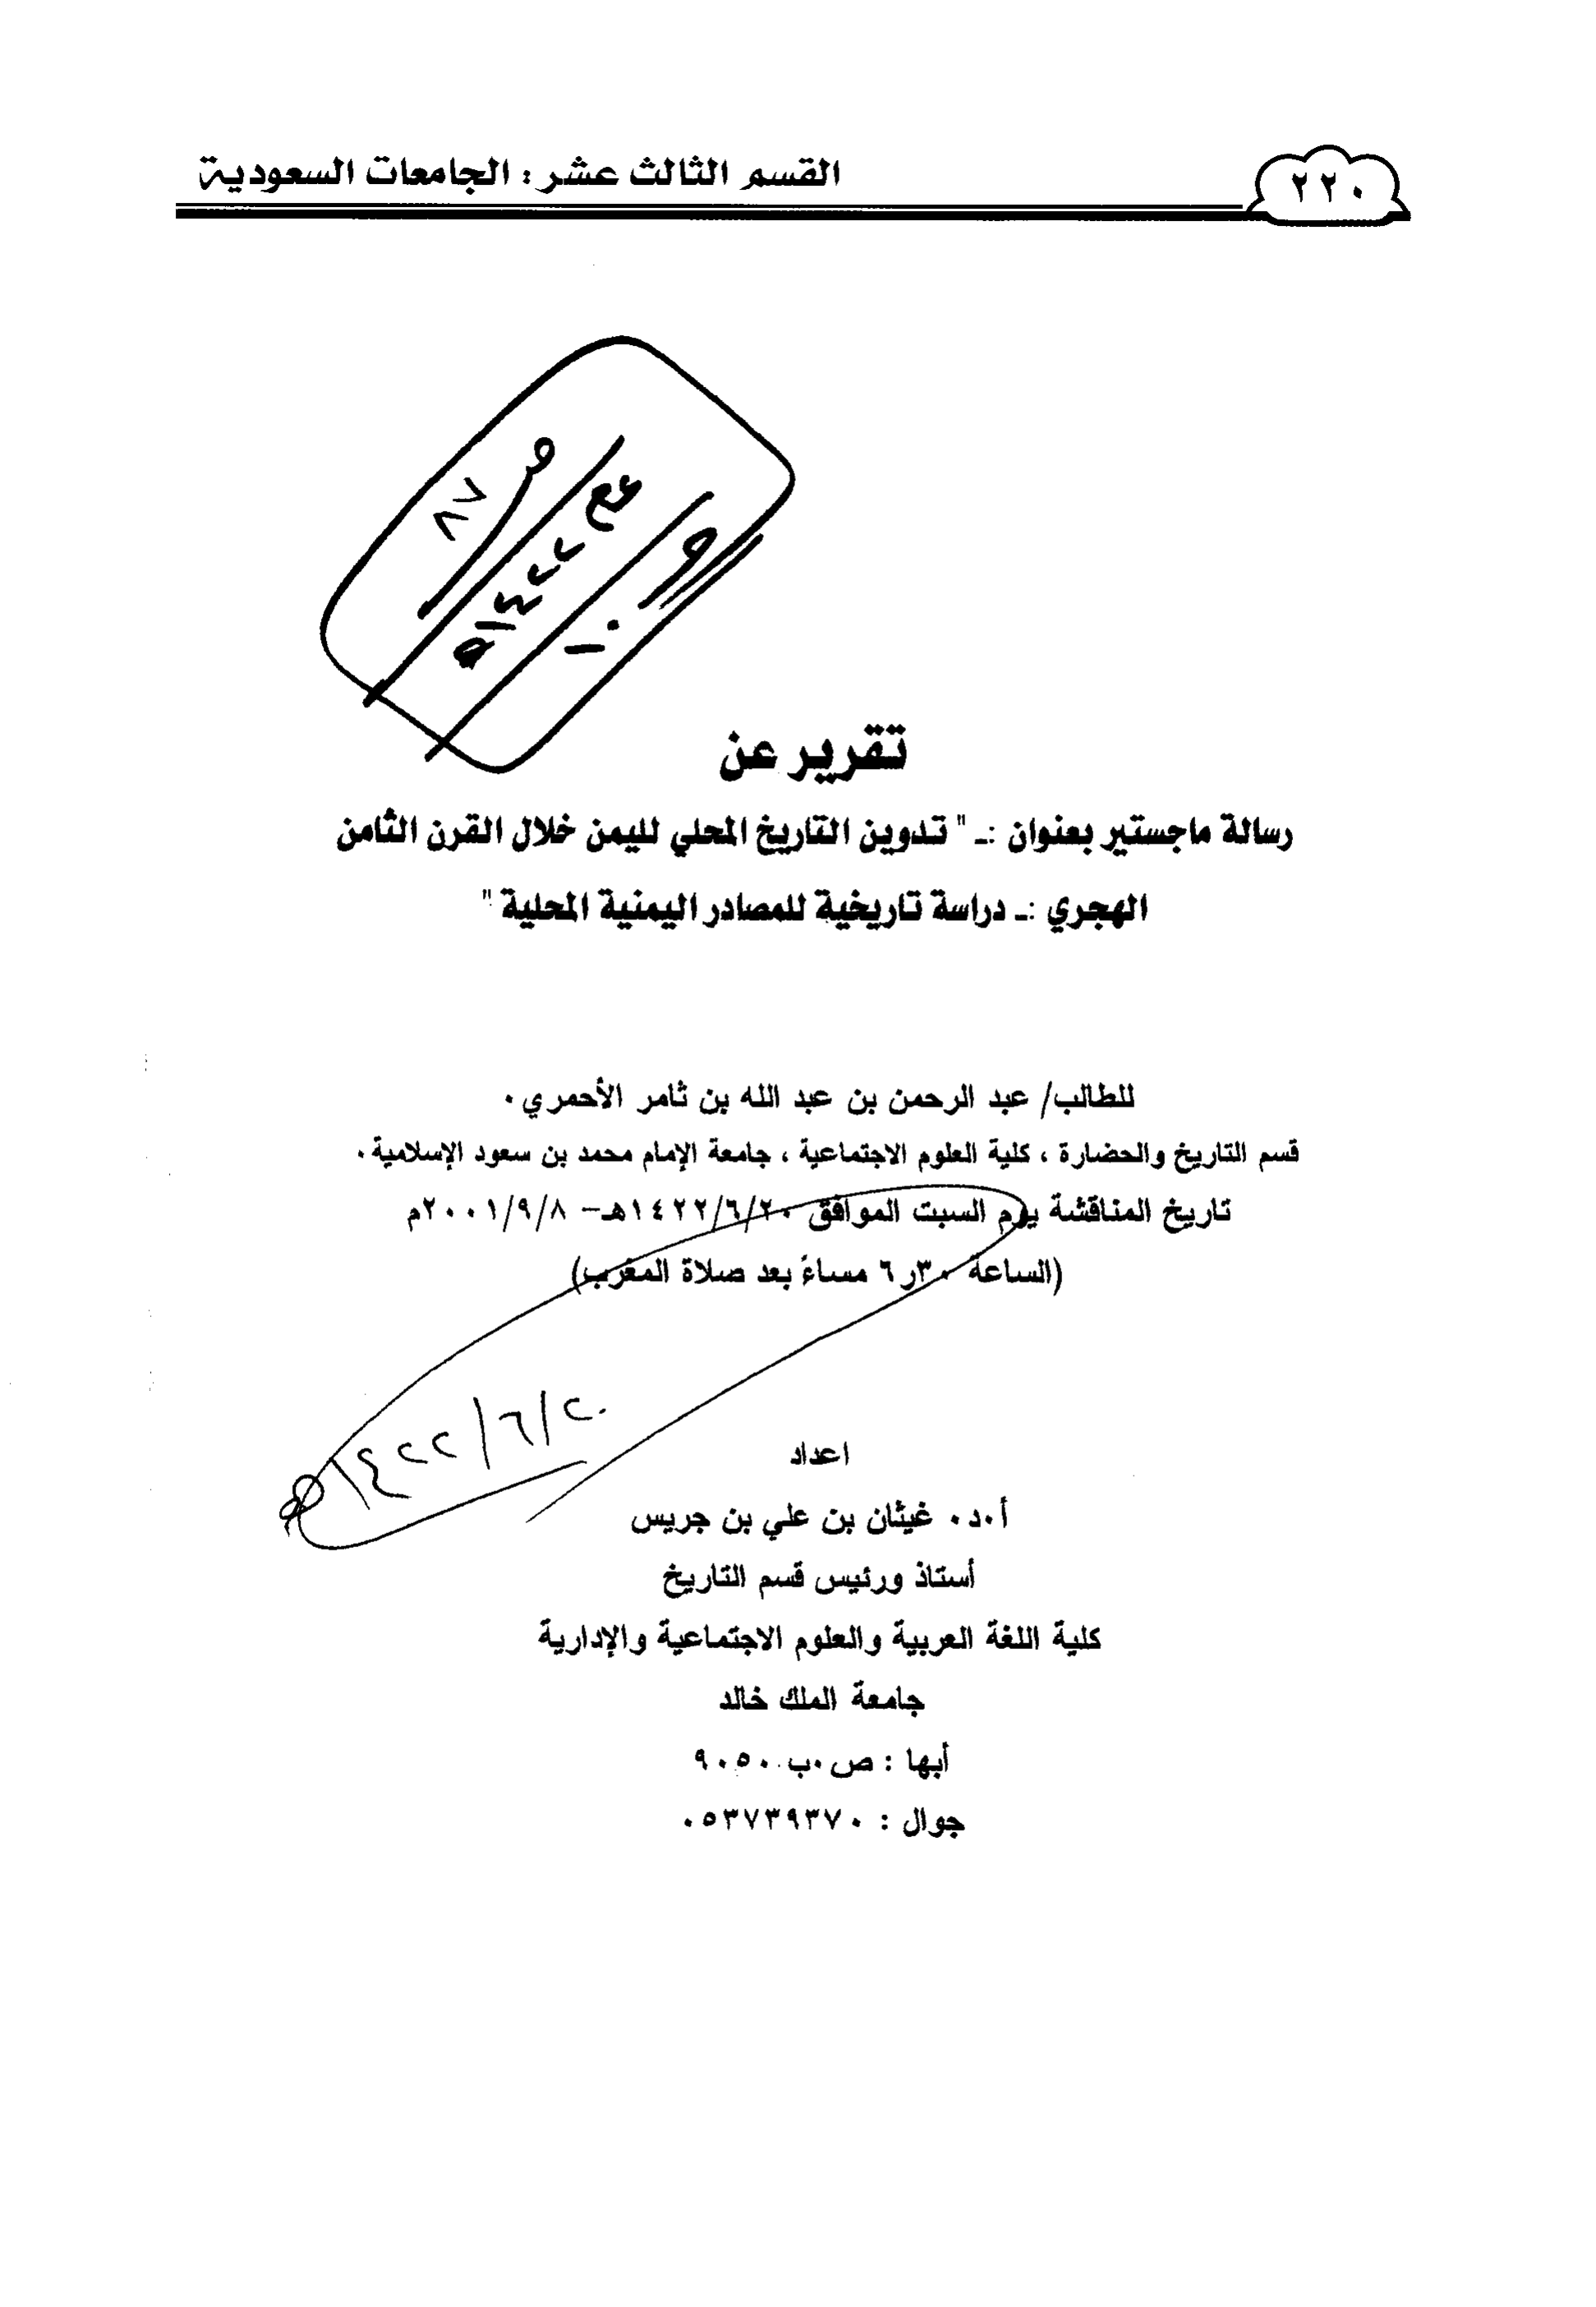 القسم الثالث عشر : الجامعات السعودية
٢٢٠
ص ٨٧
عام ١٤٢٢هـ
و ١٠
تقرير عن
رسالة ماجستير بعنوان :ـ " تدوين التاريخ المحلي لليمن خلال القرن الثامن
الهجري :ـ دراسة تاريخية للمصادر اليمنية المحلية "
للطالب/ عبد الرحمن بن عبد الله بن ثامر الأحمري .
قسم التاريخ والحضارة ، كلية العلوم الاجتماعية ، جامعة الإمام محمد بن سعود الإسلامية .
تاريخ المناقشة يوم السبت الموافق ١٤٢٢/٦/٢٠هـ – ٢٠٠١/٩/٨م
(الساعة ٣٠ر٦ مساءً بعد صلاة المغرب)
١٤٢٢/٦/٢٠هـ
اعداد
أ.د. غيثان بن علي بن جريس
أستاذ ورئيس قسم التاريخ
كلية اللغة العربية والعلوم الاجتماعية والإدارية
جامعة الملك خالد
أبها : ص.ب. ٩٠٥٠
جوال : ٠٥٣٧٣٩٣٧٠